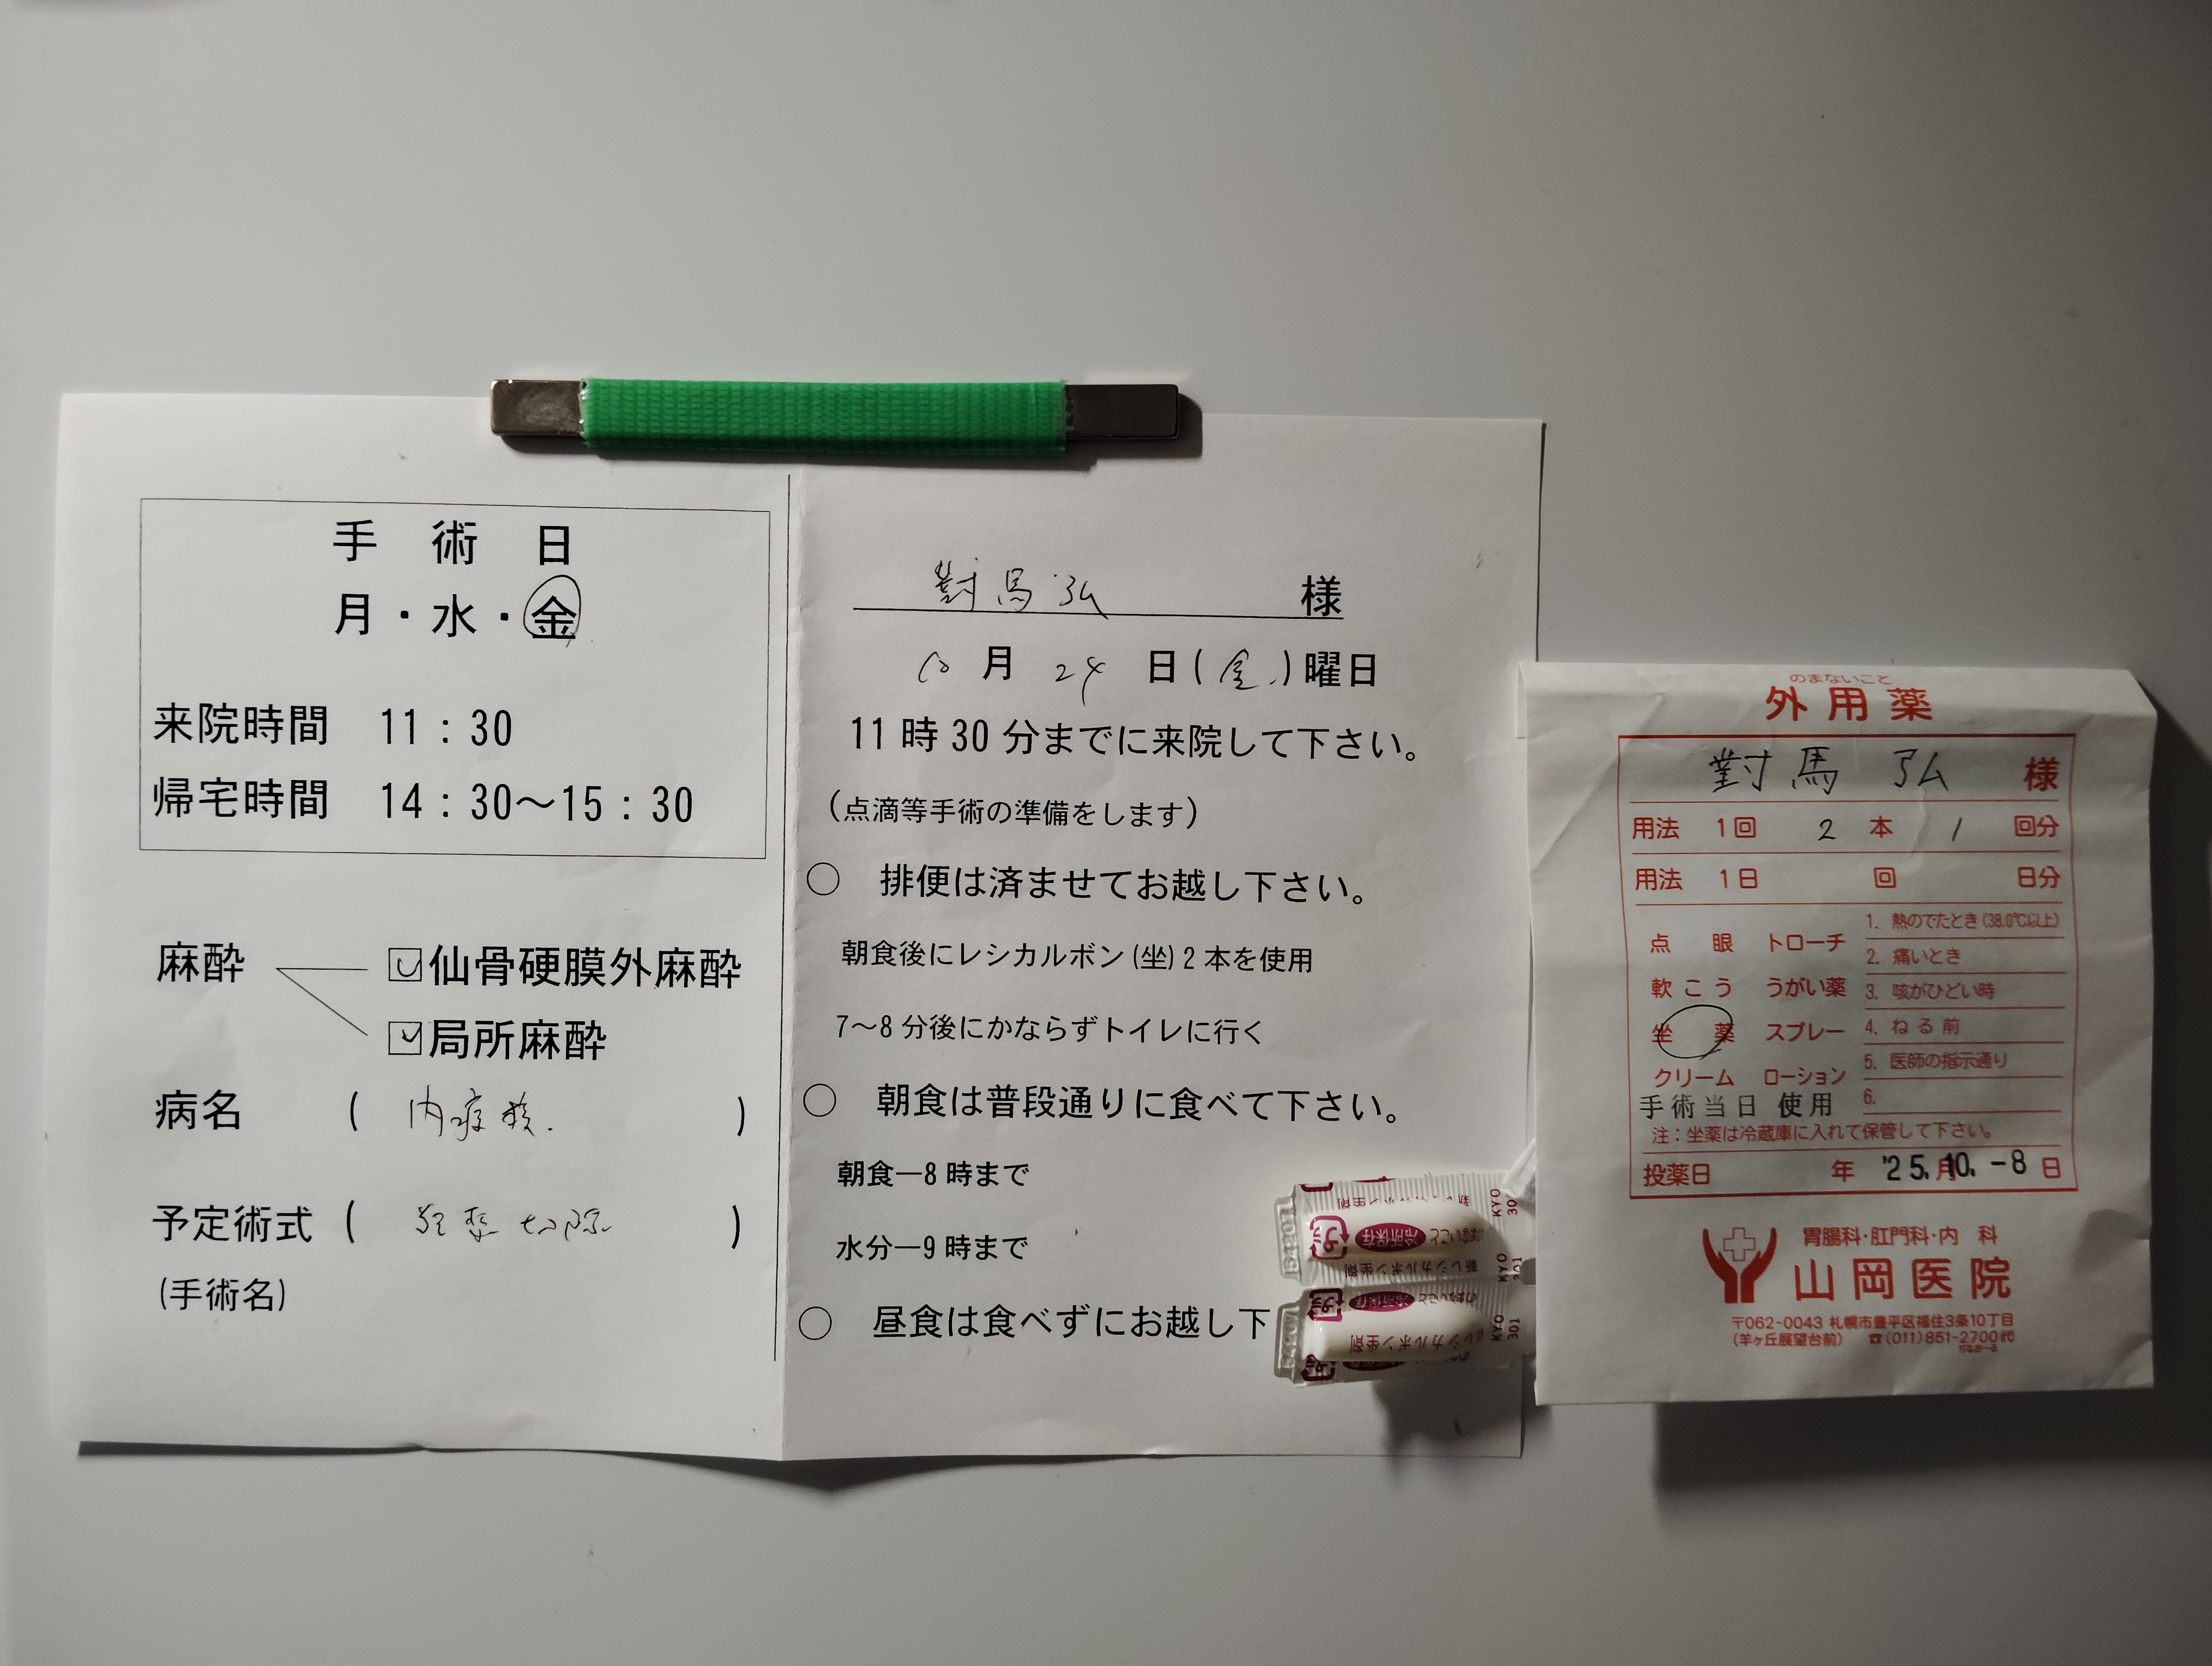 手 術 日
月・水・金
来院時間 11：30
帰宅時間 14：30～15：30
麻酔
仙骨硬膜外麻酔
局所麻酔
病名 ( 内痔核. )
予定術式 ( 切除 )
(手術名)
對馬弘 様
10月 24日(金)曜日
11時30分までに来院して下さい。
(点滴等手術の準備をします)
○ 排便は済ませてお越し下さい。
朝食後にレシカルボン(坐)2本を使用
7～8分後にかならずトイレに行く
○ 朝食は普段通りに食べて下さい。
朝食―8時まで
水分―9時まで
○ 昼食は食べずにお越し下
新レシカルボン坐剤
冷所保存
KYO
301
新レシカルボン坐剤
KYO
301
のまないこと
外用薬
對馬 弘 様
用法 1回 2 本 1 回分
用法 1日 回 日分
点 眼 トローチ
軟こう うがい薬
坐 薬 スプレー
クリーム ローション
1. 熱のでたとき(38.0℃以上)
2. 痛いとき
3. 咳がひどい時
4. ねる前
5. 医師の指示通り
6.
手術当日 使用
注：坐薬は冷蔵庫に入れて保管して下さい。
投薬日 年 '25.月10.-8日
胃腸科・肛門科・内科
山岡医院
〒062-0043 札幌市豊平区福住3条10丁目
(羊ヶ丘展望台前) ☎(011)851-2700代